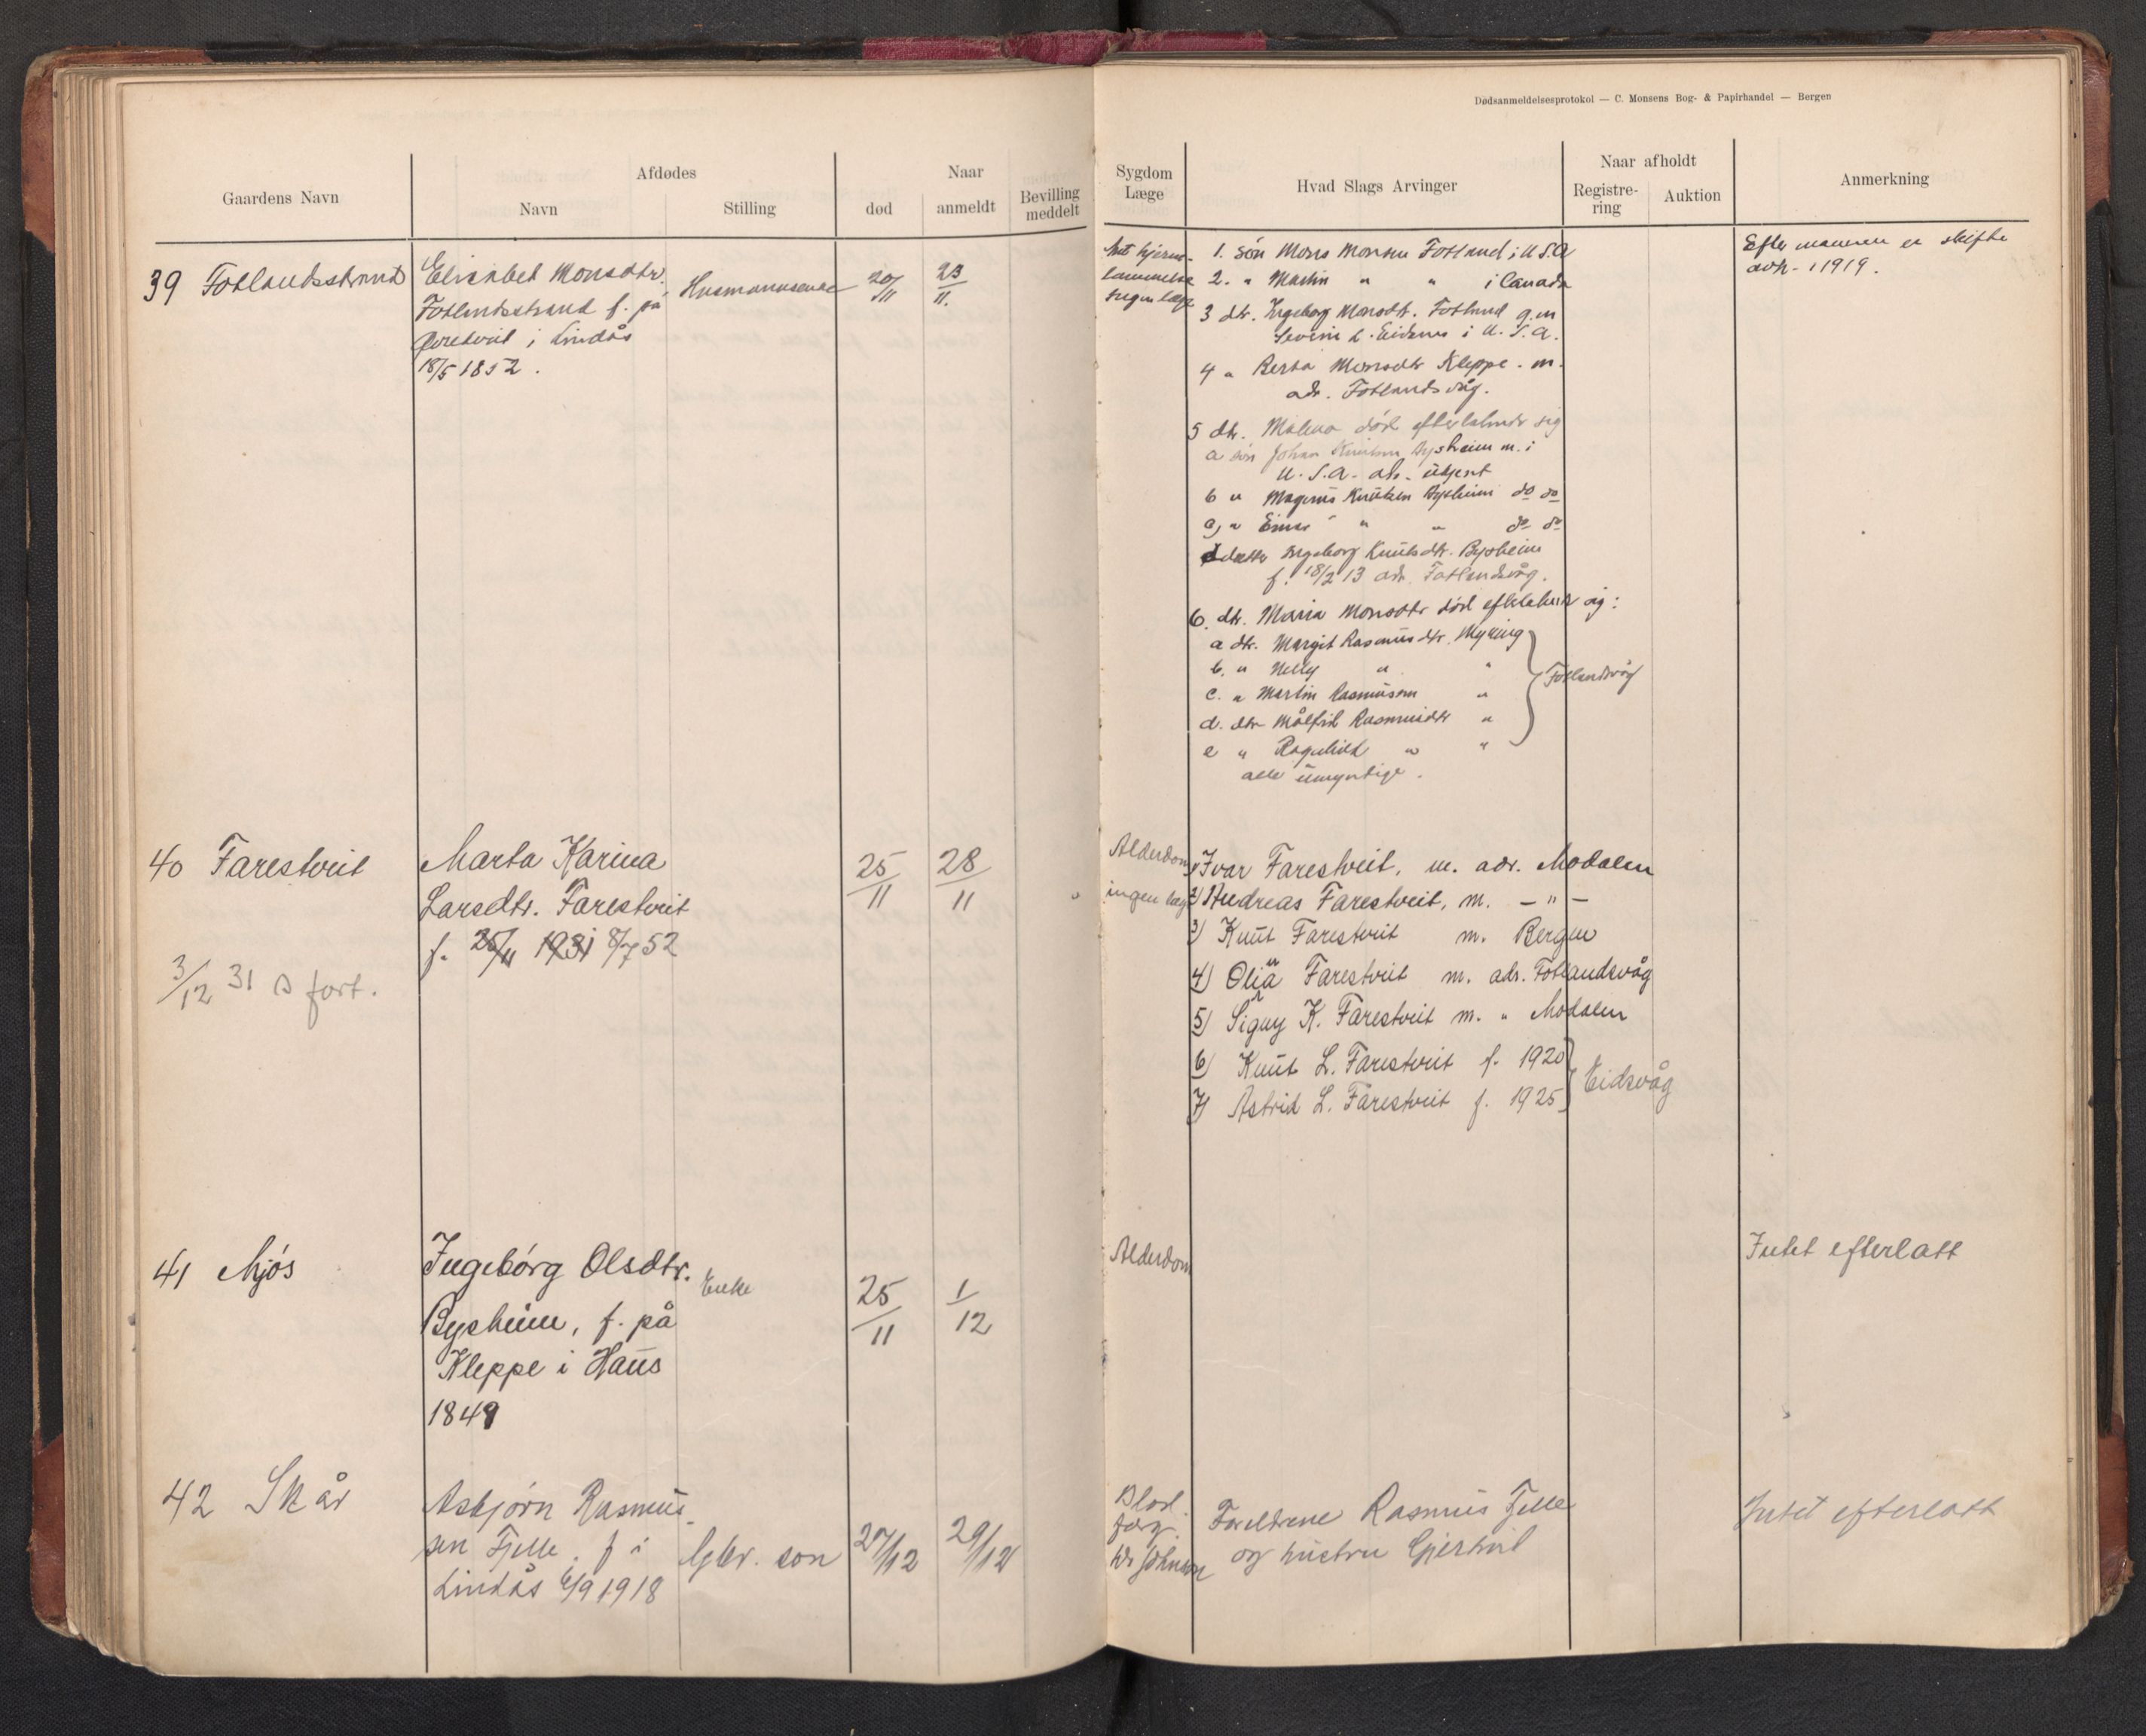 Dødsanmeldelsesprotokol — C. Monsens Bog- & Papirhandel — Bergen
Gaardens Navn
Afdødes
Navn
Stilling
Naar
død
anmeldt
Bevilling
meddelt
Sygdom
Læge
Hvad Slags Arvinger
Naar afholdt
Registre-
ring
Auktion
Anmerkning
39 Fotlandsstrand
Elisabet Monsdtr.
Fotlandsstrand f. på
i Lindås
18/5 1852.
Husmannsenke
20/11
23/11.
lammelse
ingen læge
1. sön Mons Monsen Fotland i U.S.A
2. " Martin " " i Canada
3 dtr. Ingeborg Monsdtr. Fotland g.m
i U.S.A.
4 " Berta Monsdtr Kleppe. m.
adr. Fotlandsvåg.
5 dtr. Malena död efterlatende sig
a sön Johan Knutsen Bysheim m. i
U.S.A. adr. ukjent
b " Magnus Knutsen Bysheim do do
c, " Einar " " do do
d datter Ingeborg Knutsdtr. Bysheim
f. 18/2 13 adr. Fotlandsvåg.
6. dtr. Maria Monsdtr död efterlatende sig:
a dtr. Margit Rasmusdtr. Myking
b. " Nelly " "
c. " Martin Rasmussen "
d. dtr Målfrid Rasmusdtr "
e " Ragnhild " "
Fotlandsvåg
alle umyndige.
Efter mannen er skifte
avh. i 1919.
40 Farestveit
3/12 31 fort.
Marta Karina
Larsdtr. Farestveit
f. 25/11 1931 8/7 52
25/11
28/11
Alderdom
ingen læge
1) Ivar Farestveit, m. adr. Modalen
2) Andreas Farestveit, m. — " —
3) Knut Farestveit m. Bergen
4) Olia Farestveit m. adr. Fotlandsvåg
5) Signy K. Farestveit m. " Modalen
6) Knut L. Farestveit f. 1920
7) Astrid L. Farestveit f. 1925
Eidsvåg
41 Mjós
Ingebórg Olsdtr.
Bysheim, f. på
Kleppe i Haus
1849
Enke
25/11
1/12
Alderdom
Intet efterlatt
42 Skår
Asbjørn Rasmus-
sen Fjelle. f i
Lindås 6/9 1918
Gbr. søn
27/12
29/12
Blod
Dr Johnsen
Foreldrene Rasmus Fjelle
og hustru Gjertrud
Intet efterlatt